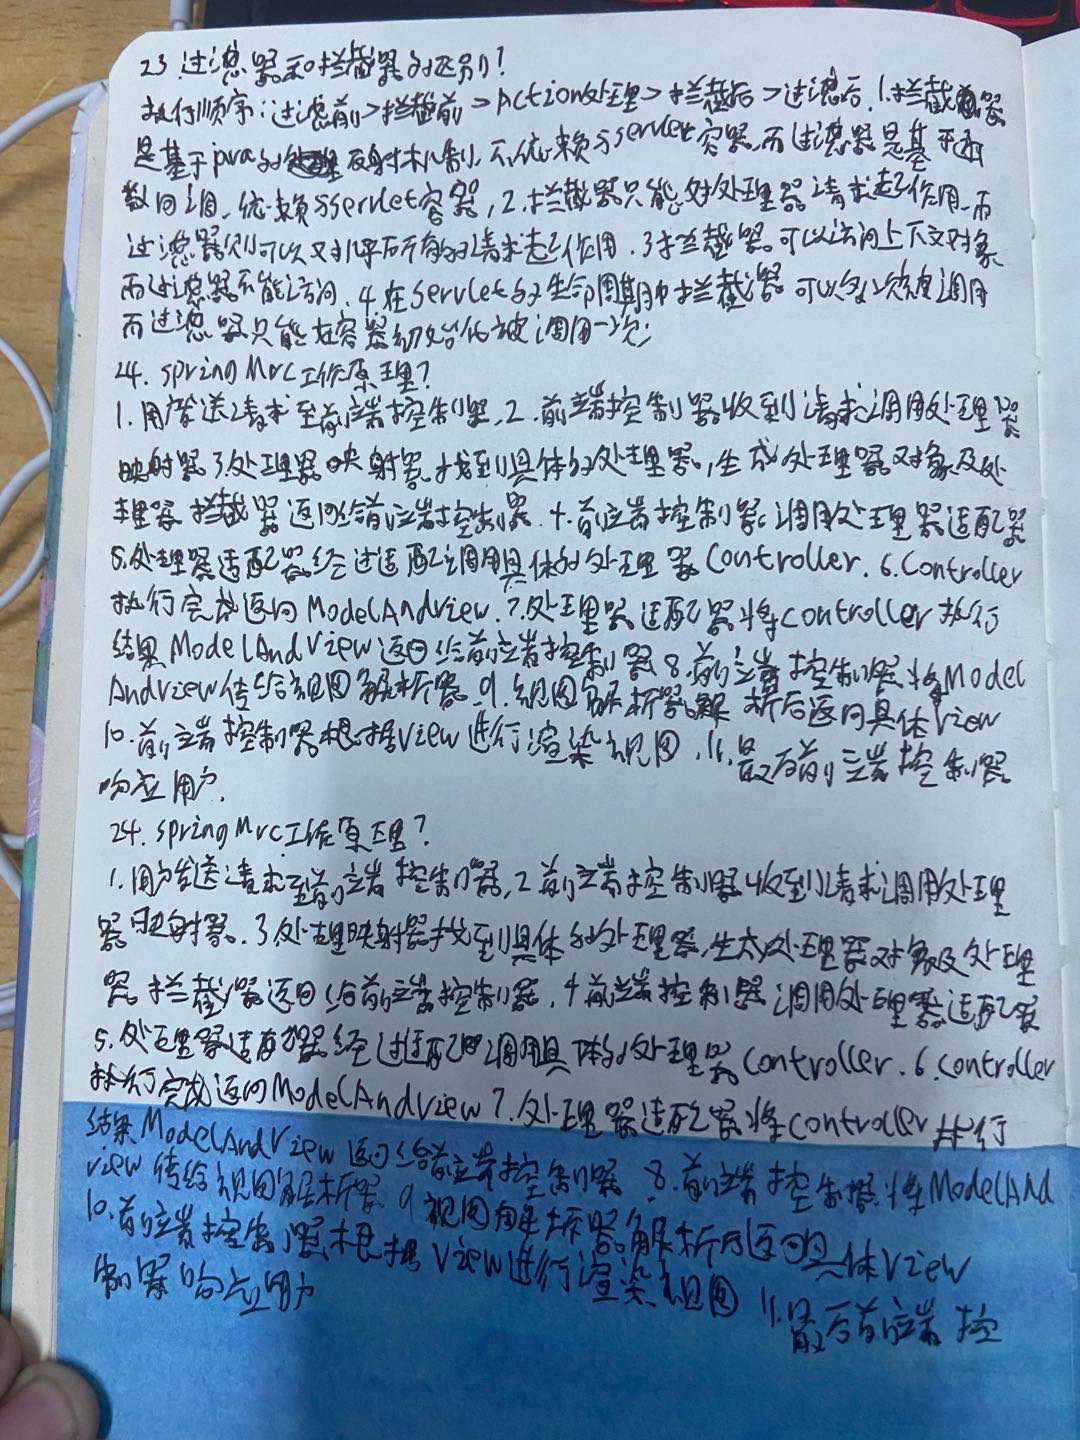 23 过滤器和拦截器的区别?
执行顺序:过滤前>拦截前>Action处理>拦截后>过滤后.1.拦截器
是基于java的反射机制,不依赖与servlet容器,而过滤器是基于函
数回调,依赖与servlet容器,2.拦截器只能对处理器请求起作用,而
过滤器则可以对几乎所有的请求起作用.3拦截器可以访问上下文对象
而过滤器不能访问,4.在servlet的生命周期中拦截器可以多次被调用
而过滤器只能在容器初始化被调用一次;
24. spring Mvc工作原理?
1.用户发送请求至前端控制器,2.前端控制器收到请求调用处理器
映射器3处理器映射器找到具体的处理器,生成处理器对象及处
理器拦截器返回给前端控制器.4.前端控制器调用处理器适配器
5.处理器适配器经过适配调用具体的处理器Controller.6.Controller
执行完成返回ModelAndview.7.处理器适配器将controller执行
结果ModelAndView返回给前端控制器8.前端控制器将Model
Andview传给视图解析器9.视图解析器解析后返回具体View
10.前端控制器根据View进行渲染视图.11.最后前端控制器
响应用户.
24. spring Mvc工作原理?
1.用户发送请求至前端控制器,2前端控制器收到请求调用处理
器映射器.3处理映射器找到具体的处理器,生成处理器对象及处理
器拦截器返回给前端控制器,4前端控制器调用处理器适配器
5.处理器适配器经过适配调用具体的处理器Controller.6.Controller
执行完成返回ModelAndView7.处理器适配器将controller执行
结果ModelAndView返回给前端控制器8.前端控制器将ModelAnd
view传给视图解析器9视图解析器解析后返回具体View
10.前端控制器根据View进行渲染视图11.最后前端控
制器响应用户